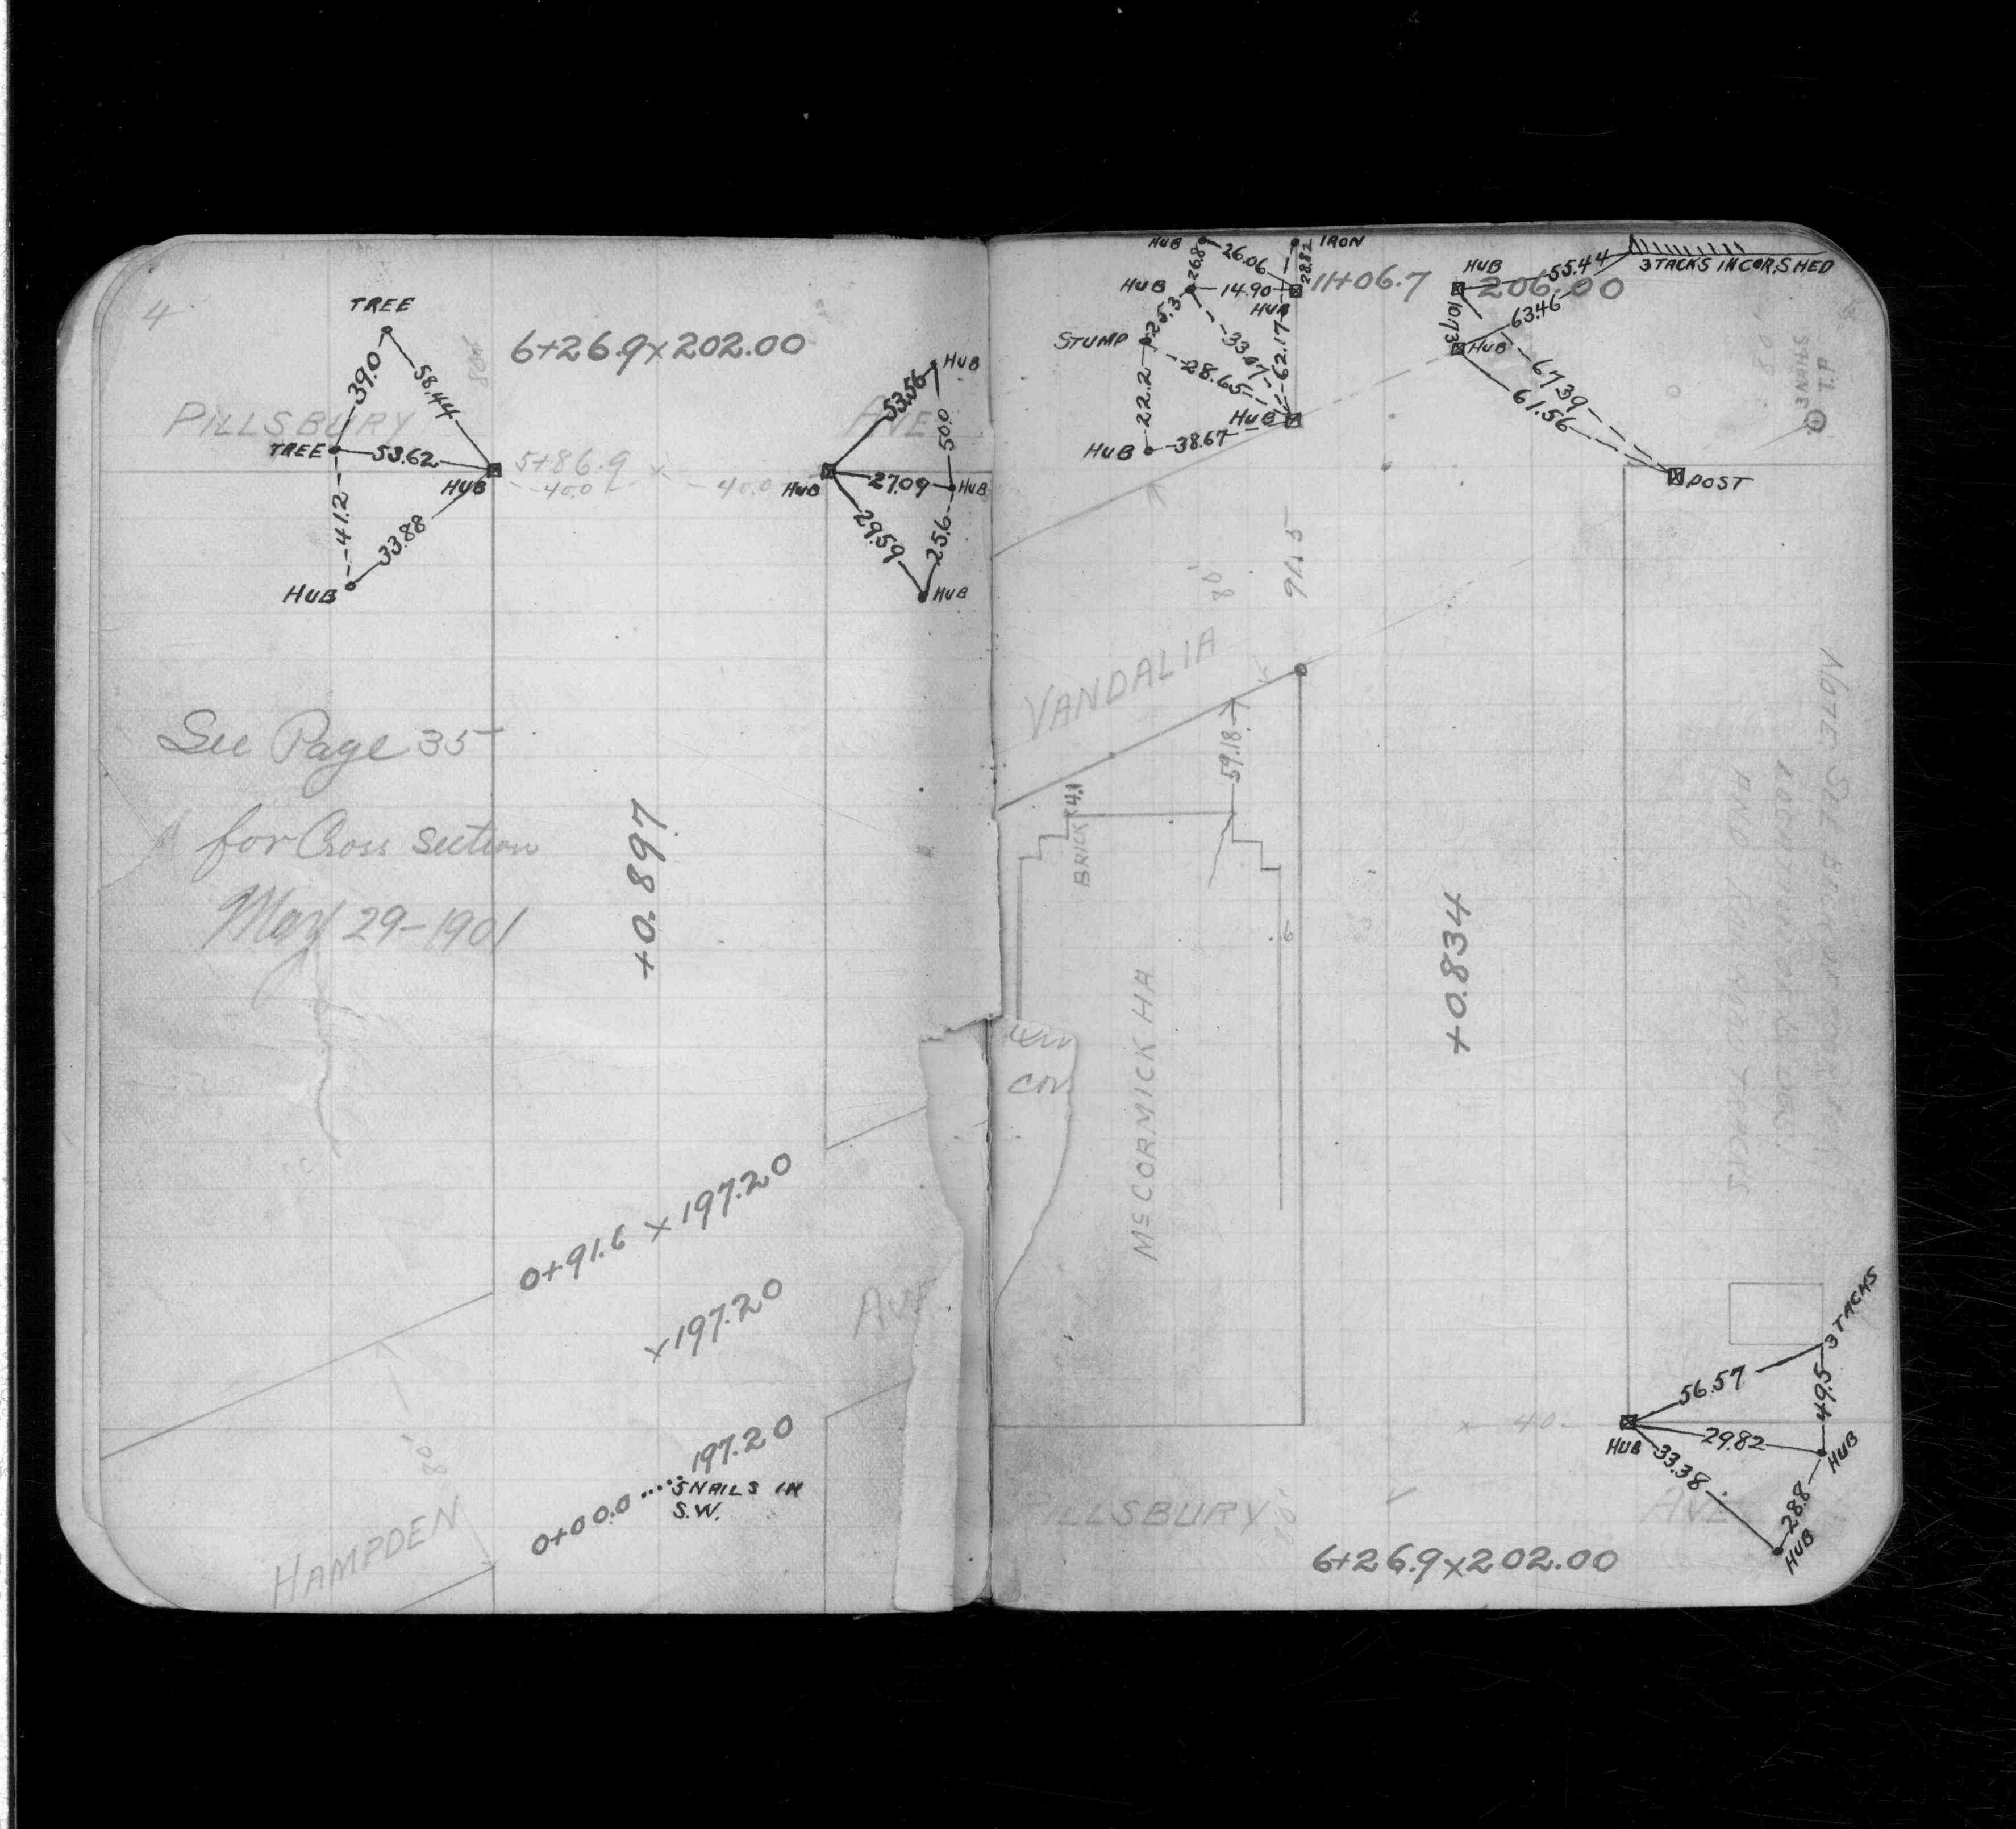 4
TREE
39.0
58.44
80'
6+26.9 x 202.00
PILLSBURY
AVE
TREE
53.62
HUB
5+86.9
40.0
40.0
41.2
33.88
HUB
HUB
53.56
HUB
50.0
27.09
HUB
29.59
25.6
HUB
See Page 35
for Cross Section
May 29-1901
+0.897
0+91.6 x 197.20
x 197.20
AVE
80'
197.20
0+00.0
5 NAILS IN
S.W.
HAMPDEN
HUB
26.8
26.06
IRON
28.82
HUB
14.90
HUB
11+06.7
HUB
206.00
55.44
3 TACKS IN COR. SHED
63.46
10.73
HUB
STUMP
25.3
33.07
62.17
28.65
22.2
HUB
38.67
HUB
67.39
61.56
POST
3 NAILS
T.P
80'
91.15
VANDALIA
59.18
BRICK
4.1
6
McCORMICK HA
+0.834
NOTE SEE BACK OF
AND
con
3 TACKS
56.57
49.5
40
HUB
29.82
HUB
33.38
28.8
HUB
PILLSBURY
AVE
6+26.9 x 202.00